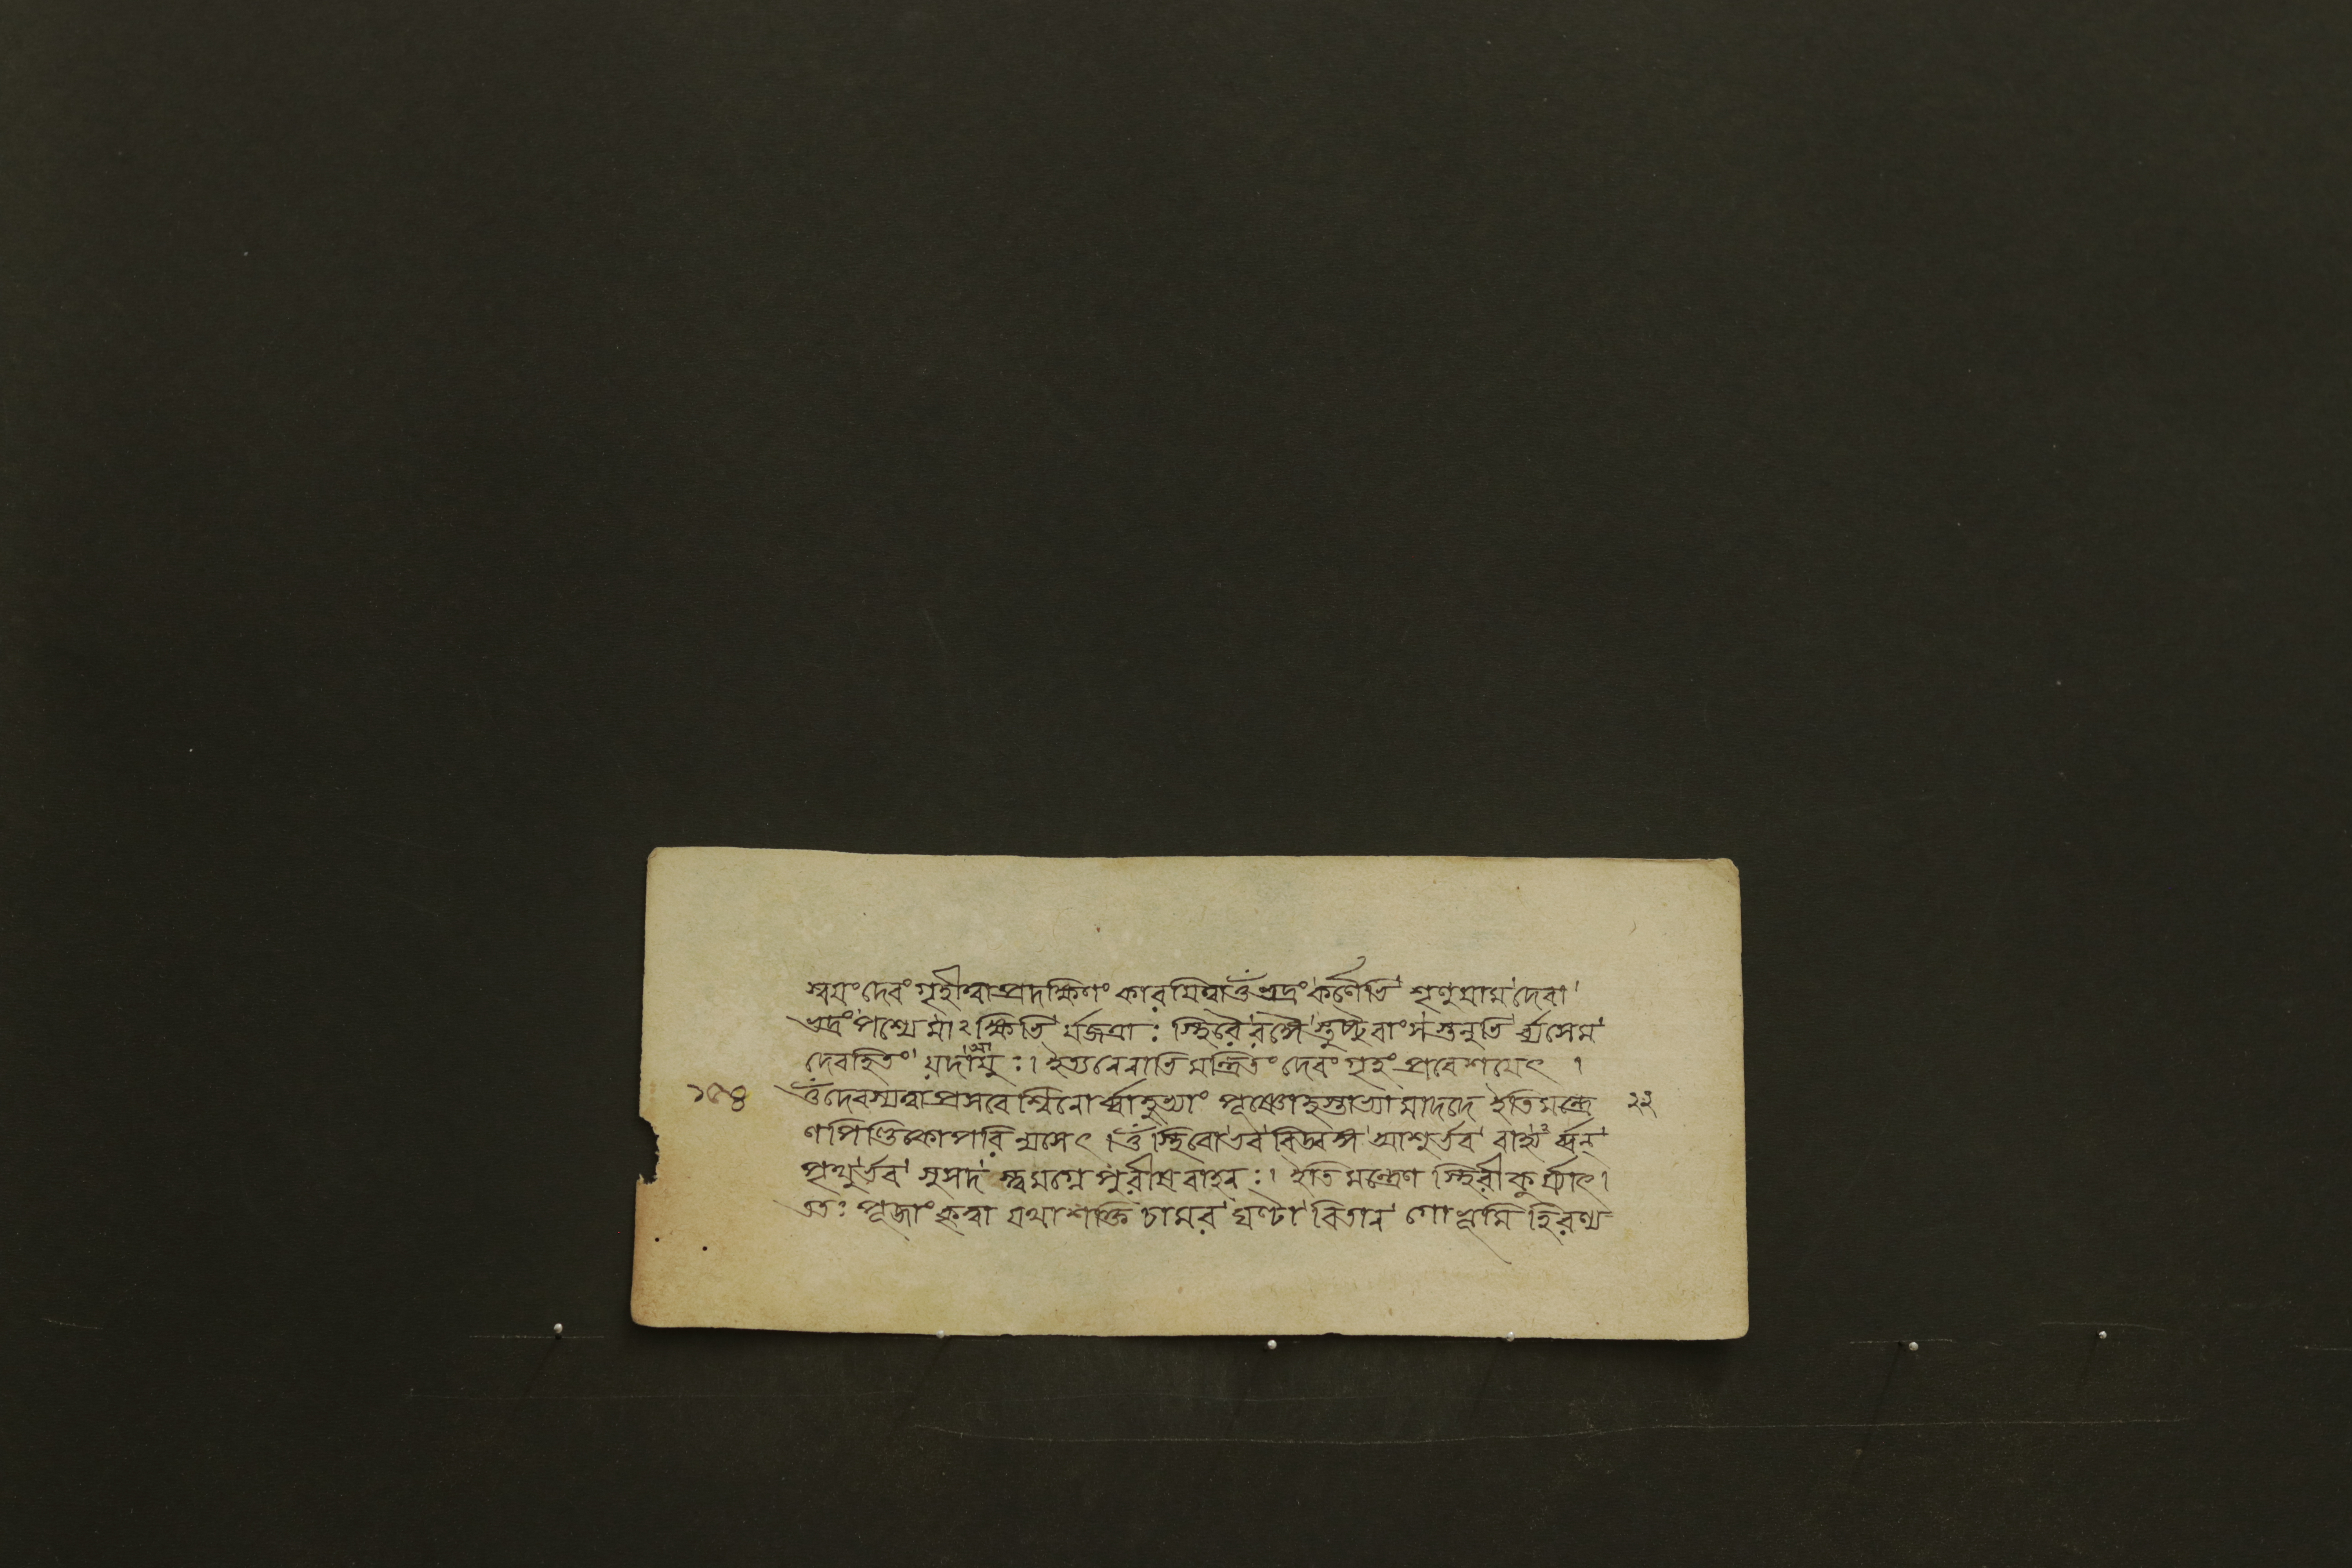 স্বয়ং দেবং গৃহীত্বা প্রদক্ষিণং কারয়িত্বা ওঁ ভদ্রং কর্ণেভি শৃণুয়াম দেবা
ভদ্রং পশ্যেমাংক্ষিভি র্যজত্রাঃ স্থিরৈ রঙ্গৈ স্তুষ্টুবাংস স্তনুভি র্ব্যসেম
দেবহিতং যদায়ুঃ। ইত্যনেনাভিমন্ত্রিতং দেবং গৃহং প্রবেশয়েৎ ।
ওঁ দেবস্যত্বা প্রসবেশ্বিনোর্ব্বাহুভ্যাং পূষ্ণোহস্তাভ্যামাদদে ইতিমন্ত্রে ২২
ণ পিণ্ডিকোপরি ন্যসেৎ। ওঁ স্থিরো ভব বিড্বঙ্গ আশুর্ভব বাজ্যর্ব্বন্
পৃথুর্ভব সুসদ স্ত্বমগ্নে পুরীষবাহনঃ। ইতি মন্ত্রেণ স্থিরী কুর্য্যাৎ।
ততঃ পূজাং কৃত্বা যথাশক্তি চামর ঘণ্টা বিতান গো ভূমি হিরণ্য